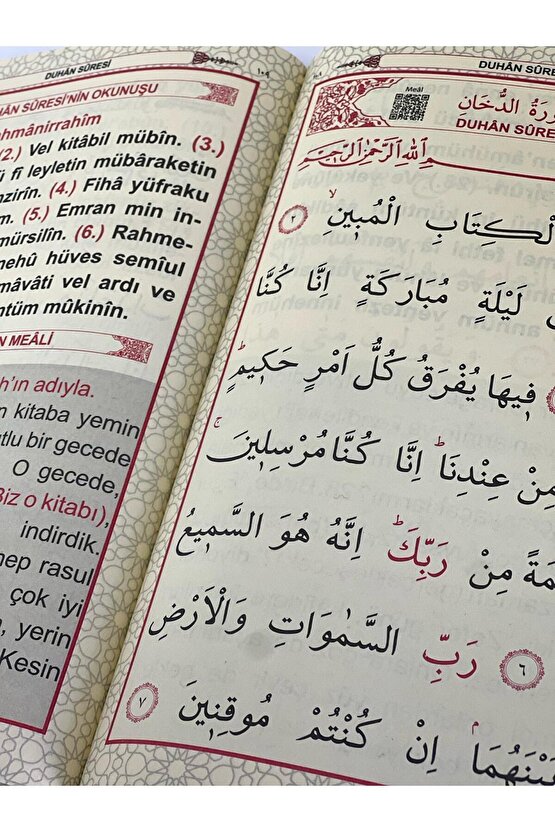 DUHÂN SÛRESİ
١٠٩
SÛRESİ'NİN OKUNUŞU
(2.) Vel kitâbil mübîn. (3.)
fî leyletin mübâraketin
(4.) Fîhâ yüfraku
(5.) Emran min in-
mürsilîn. (6.) Rahme-
hüves semîul
vel ardı ve
mûkinîn.
MEÂLİ
adıyla.
kitaba yemin
bir gecede
O gecede,
Biz o kitabı),
indirdik.
rasul
çok iyi
yerin
Kesin
DUHÂN SÛRE
Meâl
الدُّخَانِ
DUHÂN SÛRE
اللّٰهِ الرَّحْمٰنِ الرَّحِيمِ
الْمُبِينِ ٢
لَيْلَةٍ مُبَارَكَةٍ اِنَّا كُنَّا
فِيهَا يُفْرَقُ كُلُّ اَمْرٍ حَكِيمٍ
مِنْ عِنْدِنَا اِنَّا كُنَّا مُرْسِلِينَ
مِنْ رَبِّكَ اِنَّهُ هُوَ السَّمِيعُ
٦ رَبِّ السَّمٰوَاتِ وَالْاَرْضِ
اِنْ كُنْتُمْ مُوقِنِينَ ٧